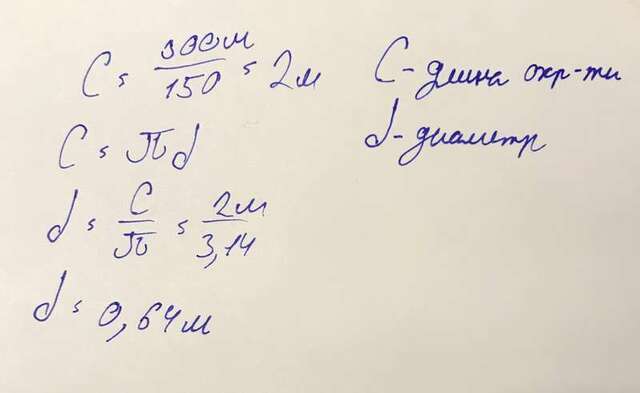 C = 300м/150 = 2м
C - длина окр-ти
C = πd
d - диаметр
d = C/π = 2м/3,14
d = 0,64м